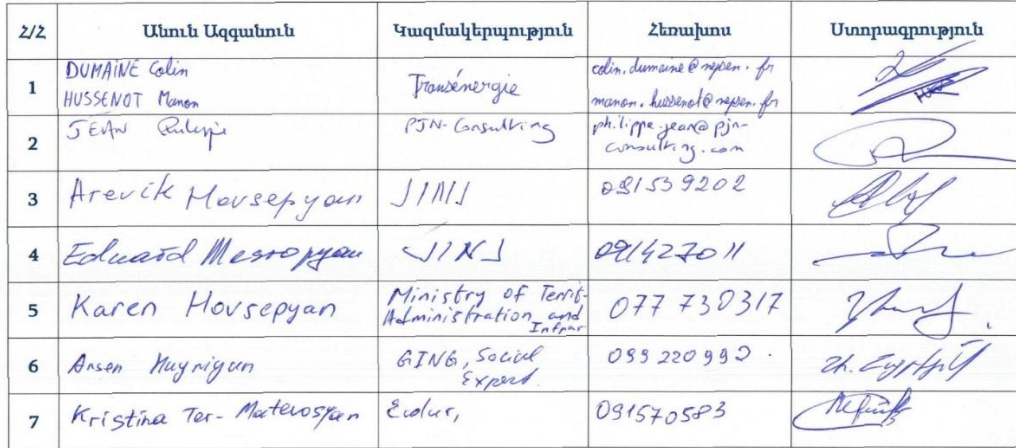 Հ/Հ Անուն Ազգանուն Կազմակերպություն Հեռախոս Ստորագրություն
1 DUMAINE Colin Transénergie colin.dumaine@nepsen.fr
HUSSENOT Manon manon.hussenot@nepsen.fr
2 JEAN Philippe PJN-Consulting philippe.jean@pjn-
consulting.com
3 Arevik Hovsepyan JINJ 091539202
4 Eduard Mesropyan JINJ 091427011
5 Karen Hovsepyan Ministry of Territ- 077 730317
Administration and
Infrar
6 Arsen GING, Social 099 220992
Expert
7 Kristina Ter-Matevosyan 091570583